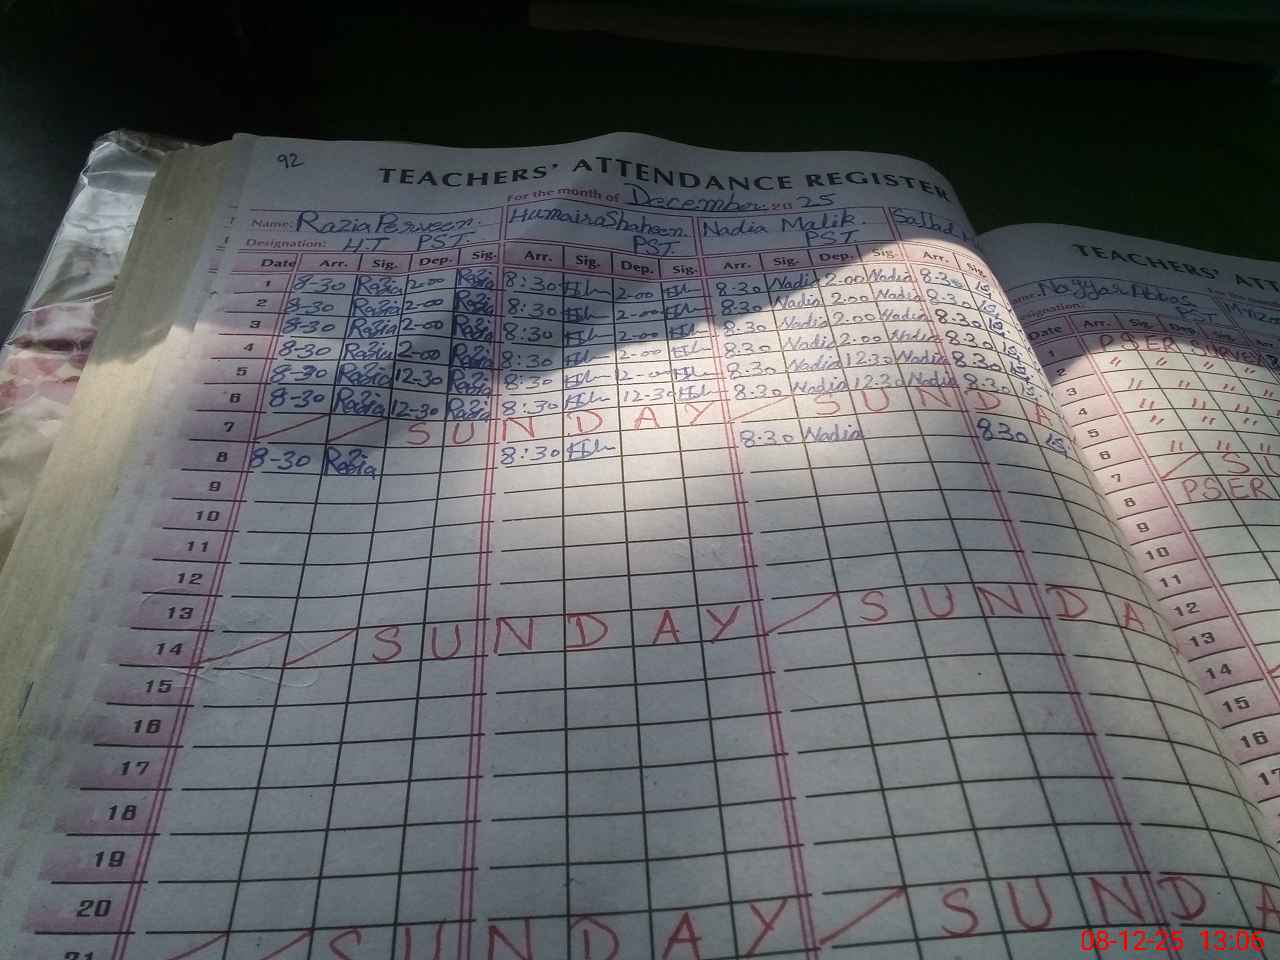 92
TEACHERS' ATTENDANCE REGISTER
For the month of December 2025
Name: Razia Perveen. Humaira Shaheen Nadia Malik. Sajjad
Designation: H.T PST. PST. PST
Date Arr. Sig. Dep. Sig. Arr. Sig. Dep. Sig. Arr. Sig. Dep. Sig. Arr. Sig.
1 8-30 Razia 2-00 Razia 8:30 2-00 8.30 Nadia 2.00 Nadia 8.30
2 8-30 Razia 2-00 Razia 8:30 2-00 8.30 Nadia 2.00 Nadia 8.30
3 8-30 Razia 2-00 Razia 8:30 2-00 8.30 Nadia 2.00 Nadia 8.30
4 8-30 Razia 2-00 Razia 8:30 2-00 8.30 Nadia 2.00 Nadia 8.30
5 8-30 Razia 12-30 Razia 8:30 8.30 Nadia 12.30 Nadia 8.30
6 8-30 Razia 12-30 Razia 8:30 12-30 8.30 Nadia 12.30 Nadia 8.30
7 SUNDAY SUNDA
8 8-30 Razia 8:30 8.30 Nadia 8.30
9
10
11
12
13
14 SUNDAY SUNDA
15
16
17
18
19
20
21 SUNDAY SUNDA
TEACHERS' ATT
Name: Nayyar Abbas
Designation: PST
Date Arr. Sig. Dep.
1 PSER SURVEY
2 " " " "
3 " " " "
4 " " " "
5 " " " "
6 " " " "
7 SU
8 PSER
9
10
11
12
13
14
15
16
17
08-12-25 13:06